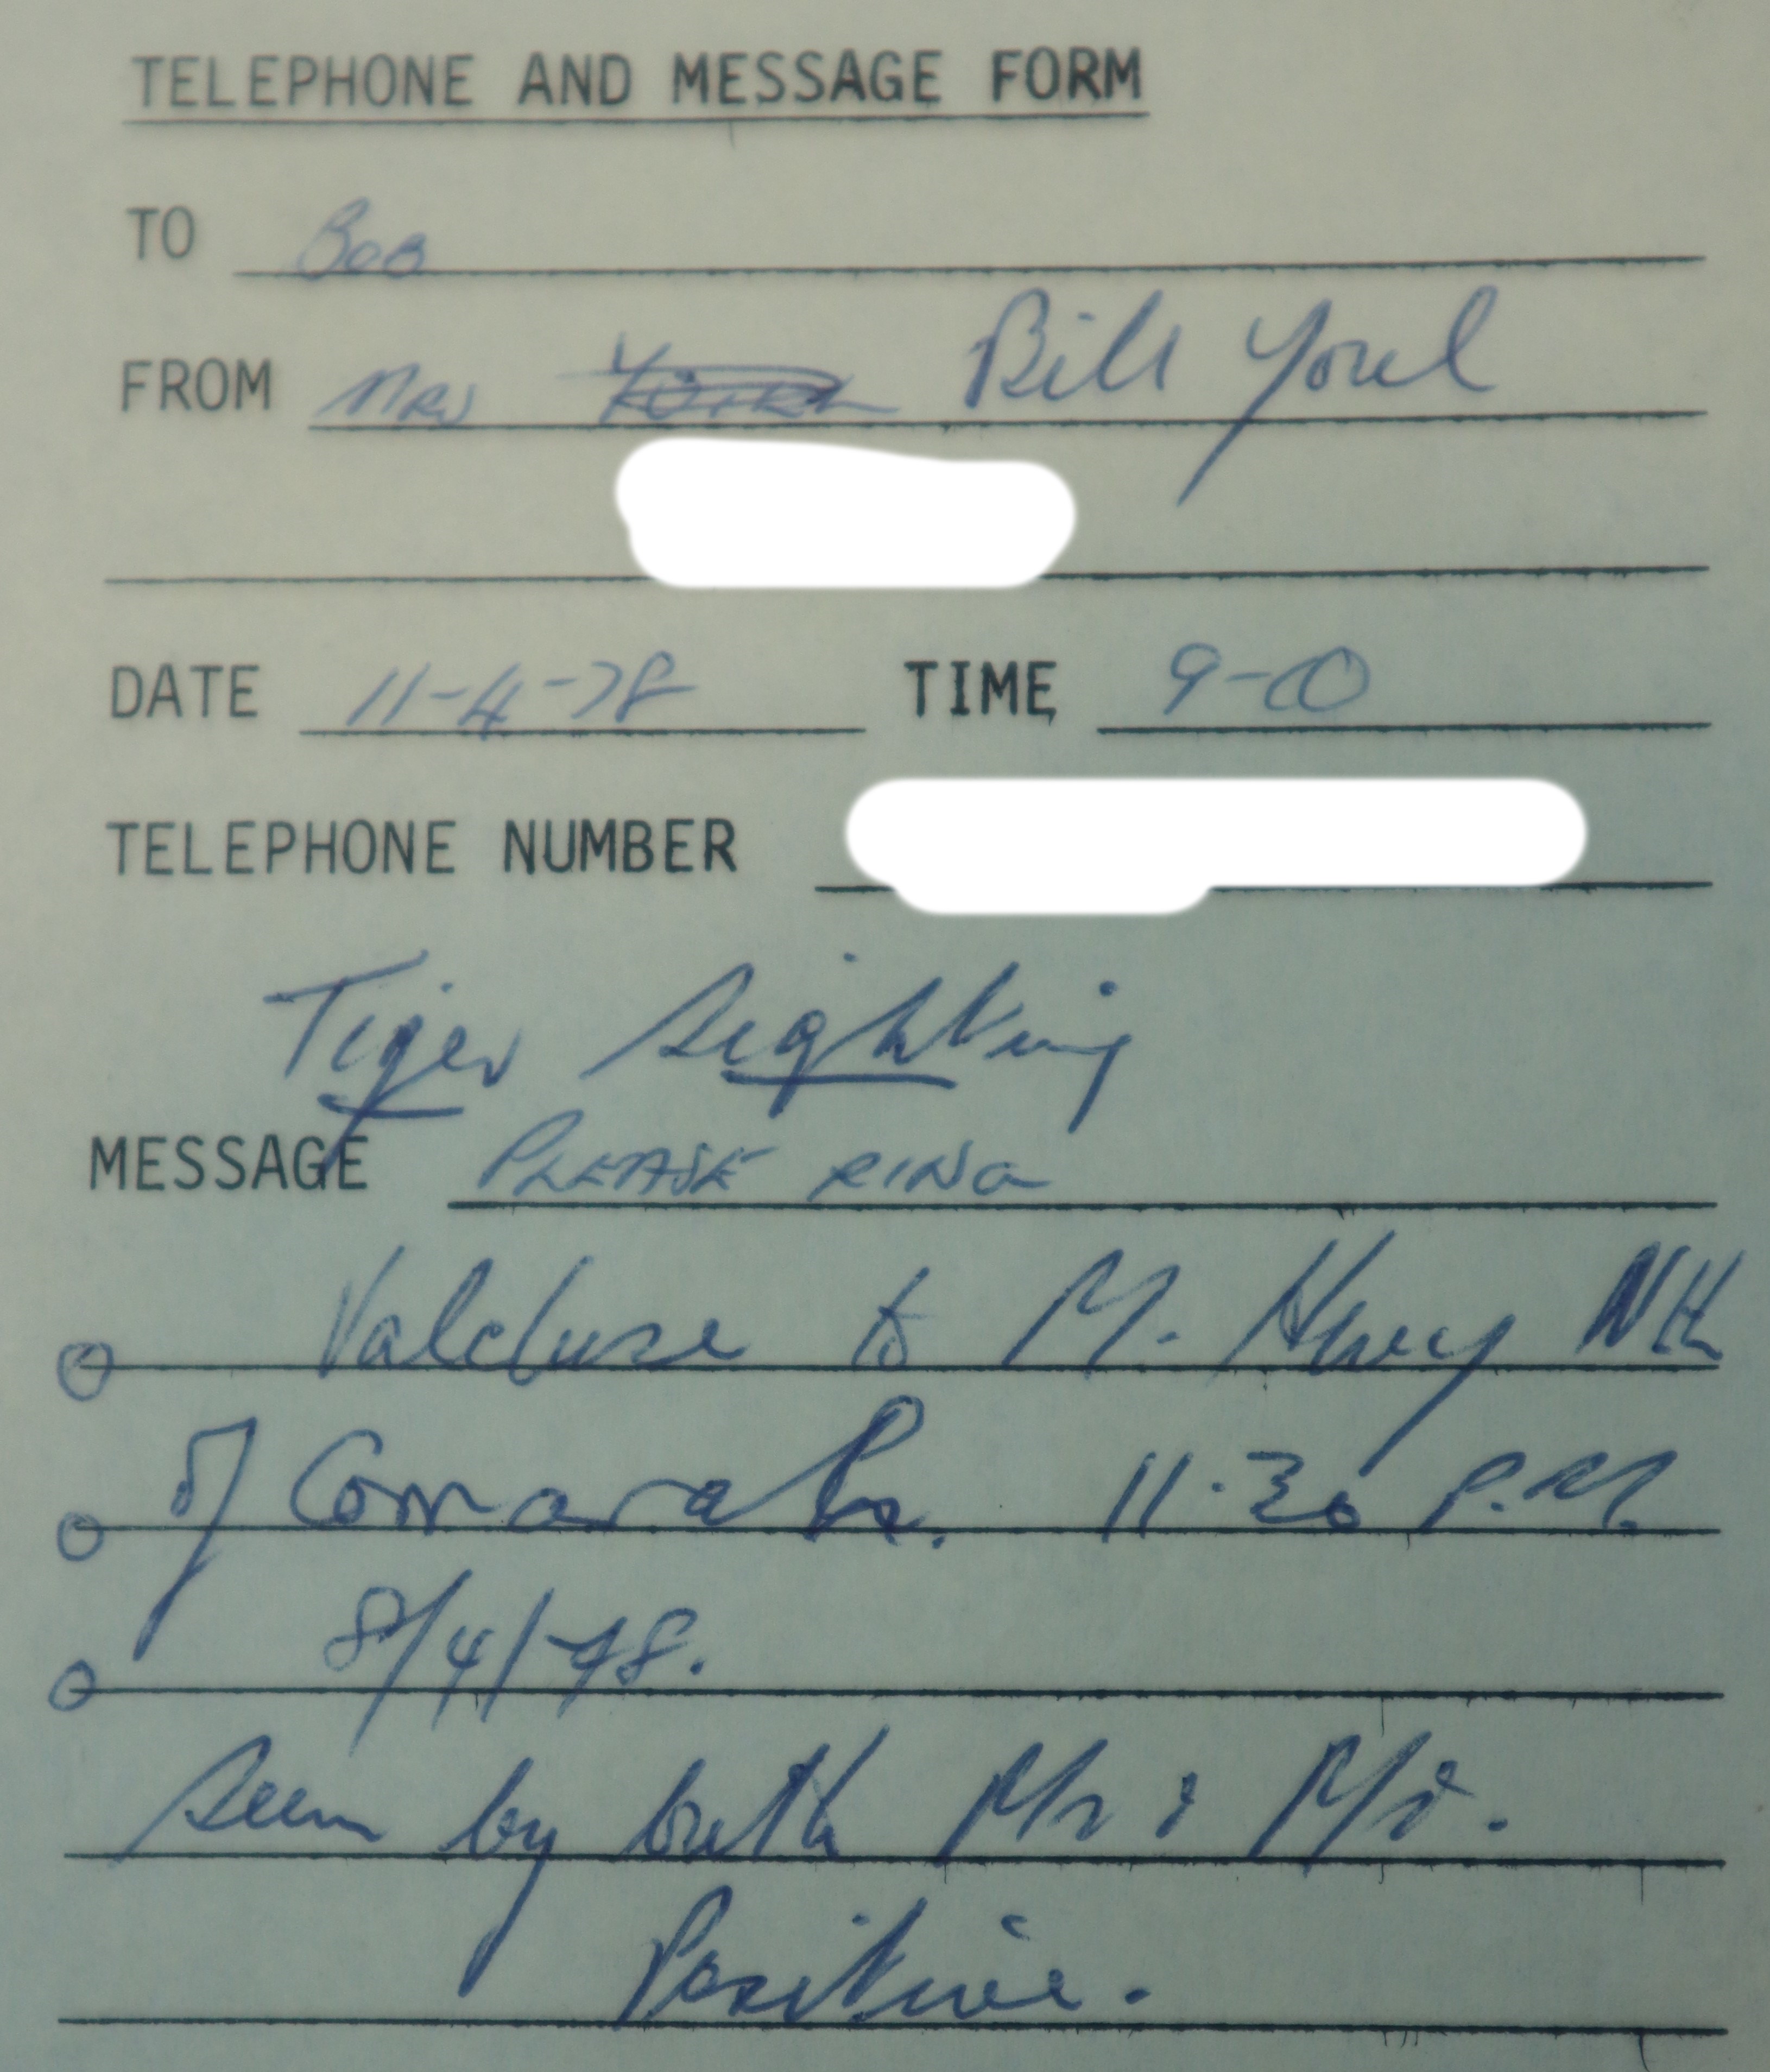 TELEPHONE AND MESSAGE FORM
TO Bob
FROM Mrs Bill Youl
DATE 11-4-78 TIME 9-00
TELEPHONE NUMBER
Tiger Sighting
MESSAGE PLEASE RING
Valcluse to M. Hwy Nth
of Conara Rd. 11.30 P.M.
8/4/78.
Seen by both Mr & Mrs.
Positive.